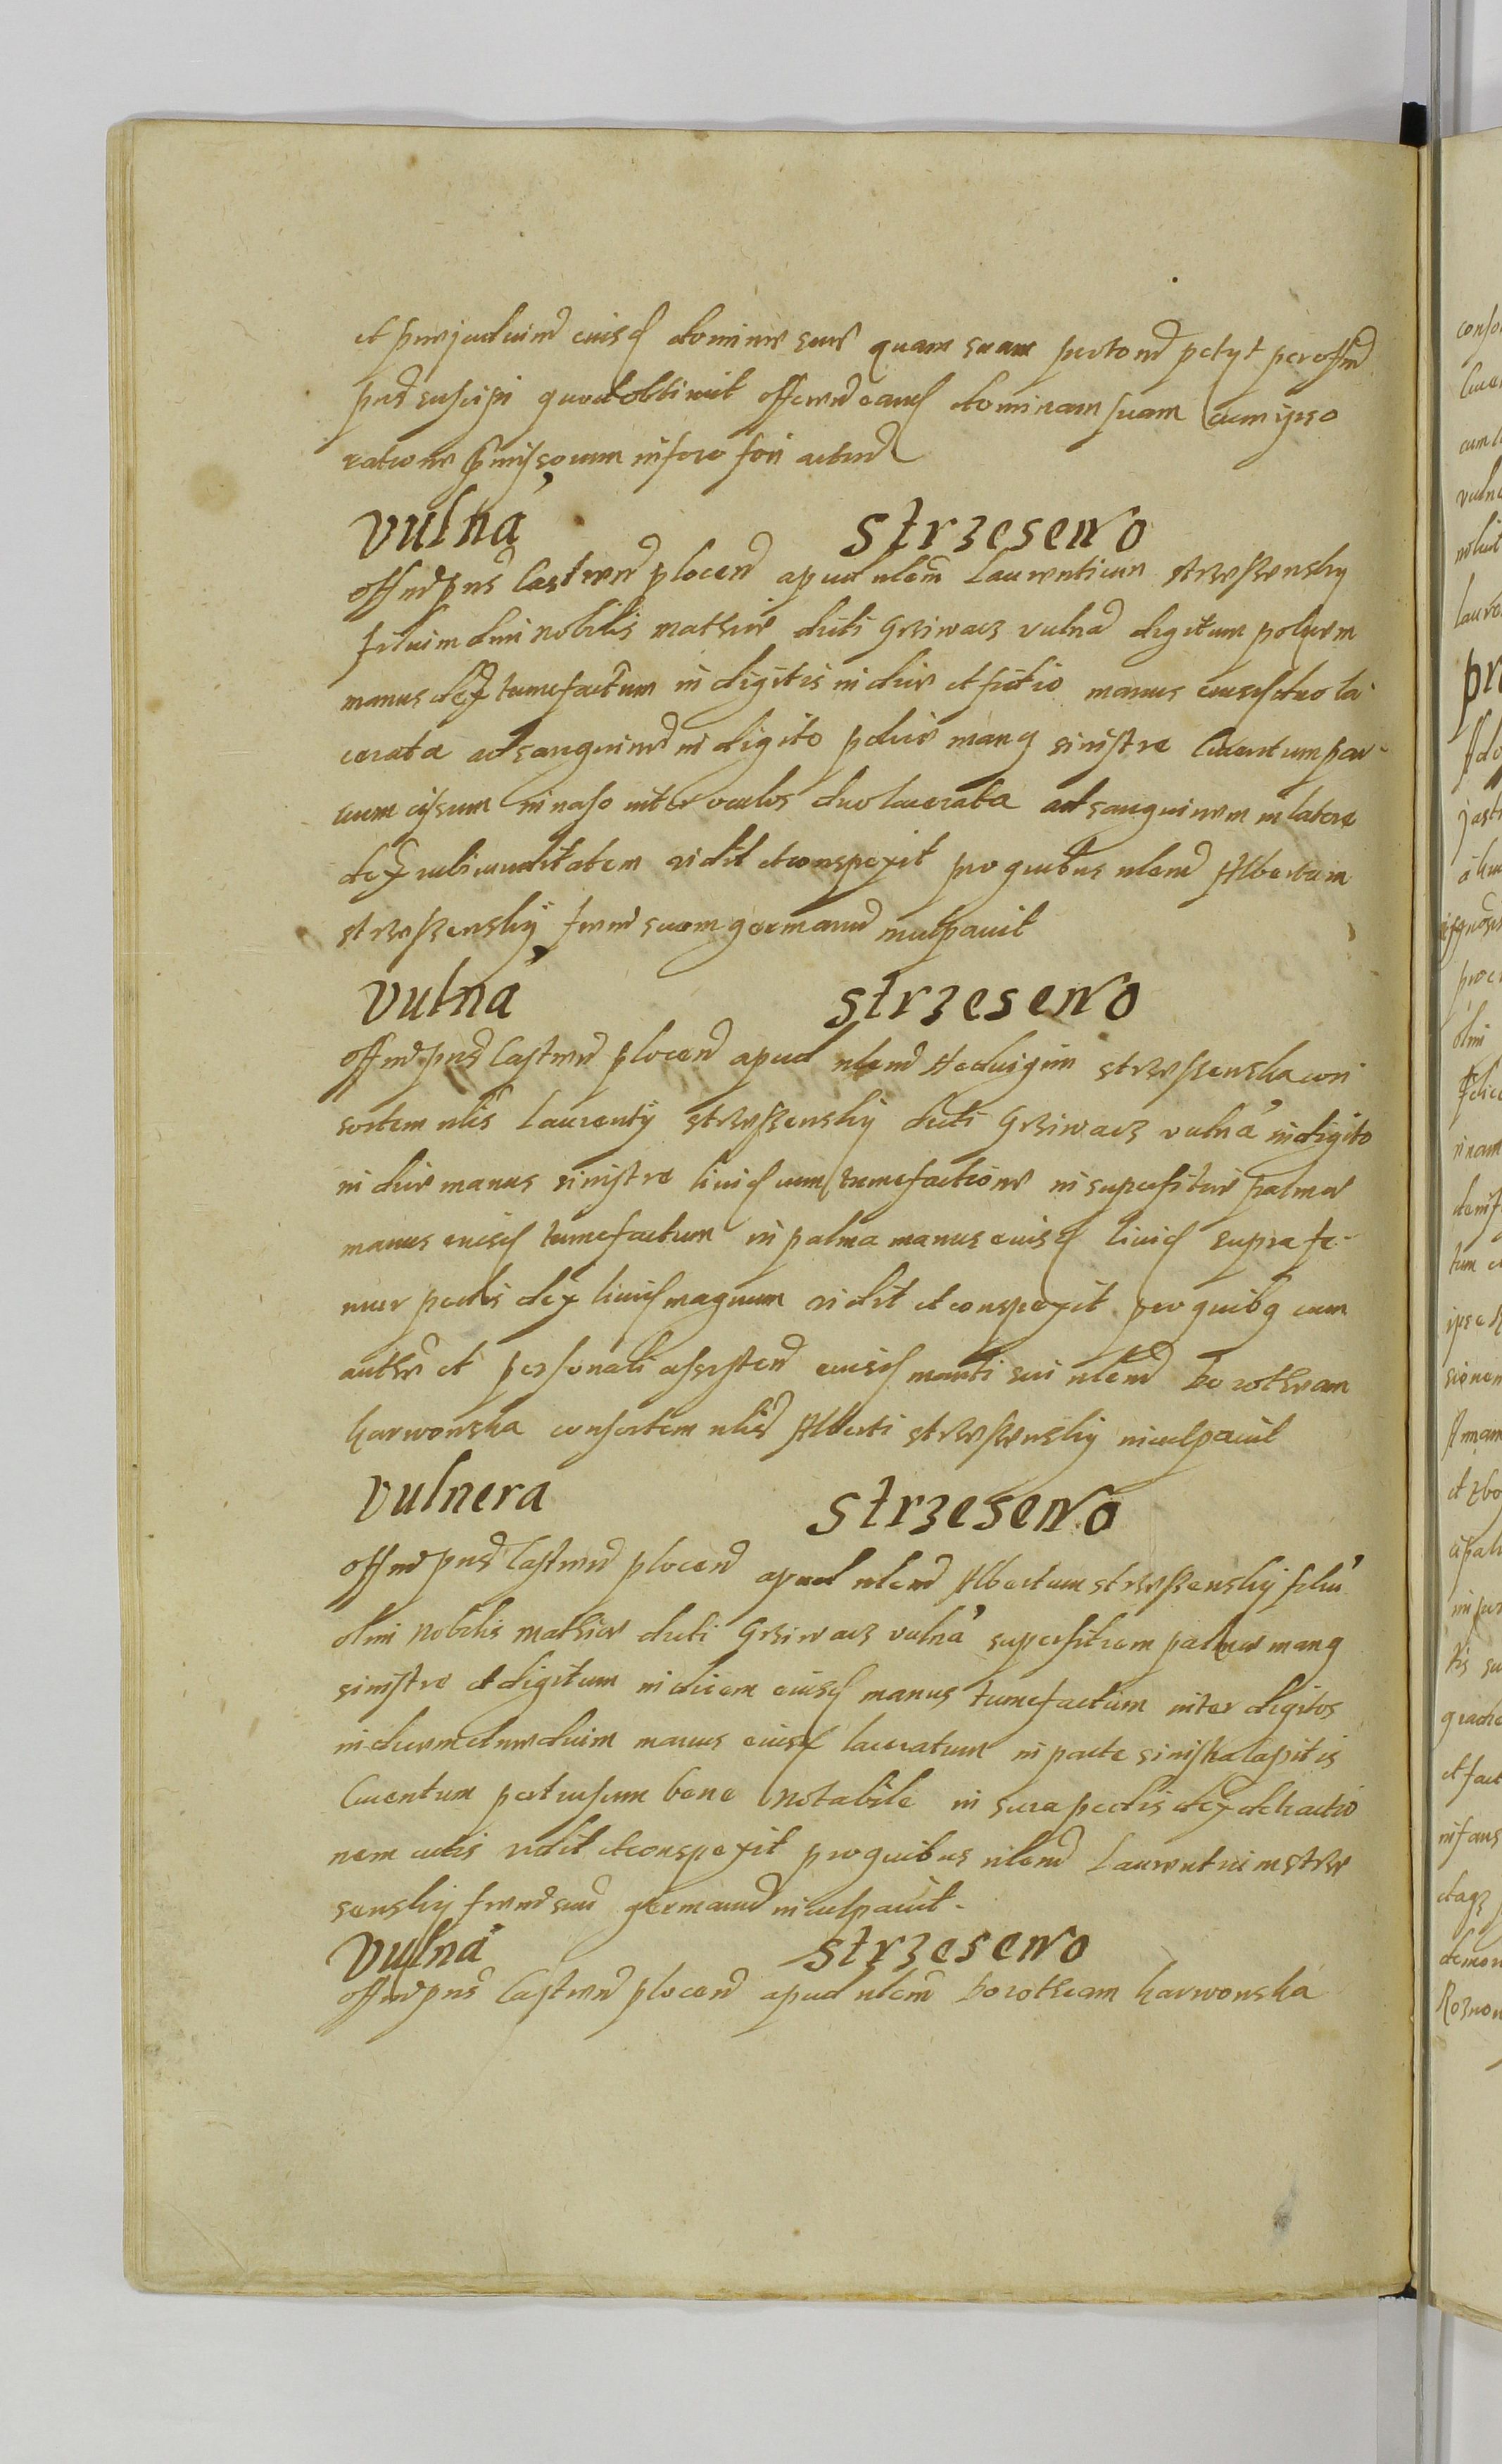 et prejudicium eiusd domine sue quam suam protone petyt per offm
pns suscipi quod obtinuit offerens eand dominam suam cum ipso
ratione pmissorum in foro fori acturd
vulna strzesewo
offm pns Castren plocen apud nlem Laurentium strzeszewsky
filium olim nobilis mathie dicti Grziwacz vulna digitum policem
manus dex tumefactum in digitis indice et
manus eiusd duo la-
cerata ad sanguinem in digito indice manus sinistre cruentum par-
vum cisum in naso inter oculos duo lacerata ad sanguinem in latere
dex rubicunditatem vidit et conspexit pro quibus nlem Albertum
strzeszewsky frem suum germanum inculpavit
vulna strzesewo
offm pns Castren plocen apud nlem Hedvigim strzeszewska con
sortem nlis Laurenty strzeszewsky dicti Grziwacz vulna in digito
indice manus sinistre livid cum tumefactione in superficie palme
manus eiusd tumefactum in palma manus eiusd livid supra fe-
mur pedis dex livid magnum vidit et conspexit pro quibus cum
auth et personali assisten eiusd mariti sui nlem Dorotheam
karwowska consortem nlis Alberti strzeszewsky inculpavit
vulnera strzesewo
offm pns Castren plocen apud nlem Albertum strzeszewsky filiu
olim nobilis mathie dicti Grziwacz vulna superficiem palme manus
sinistre et digitum indicem eiusd manus tumefactum inter digitos
indicem et medium manus eiusd laceratum in parte sinistra capitis
Cruentum pertusum bene notabile in sura pedis dex detractio
nem cutis vidit et conspexit pro quibus nlem Laurentium strze
sewsky frem suu germanum inculpavit.
vulna strzesewo
offm pns Castren plocen apud nlem Dorotheam karwowska